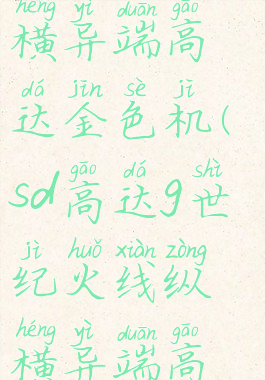 héng yì duān gāo
横异端高
dá jīn sè jī
达金色机(
gāo dá shì
sd高达g世
jì huǒ xiàn zòng
纪火线纵
héng yì duān gāo
横异端高